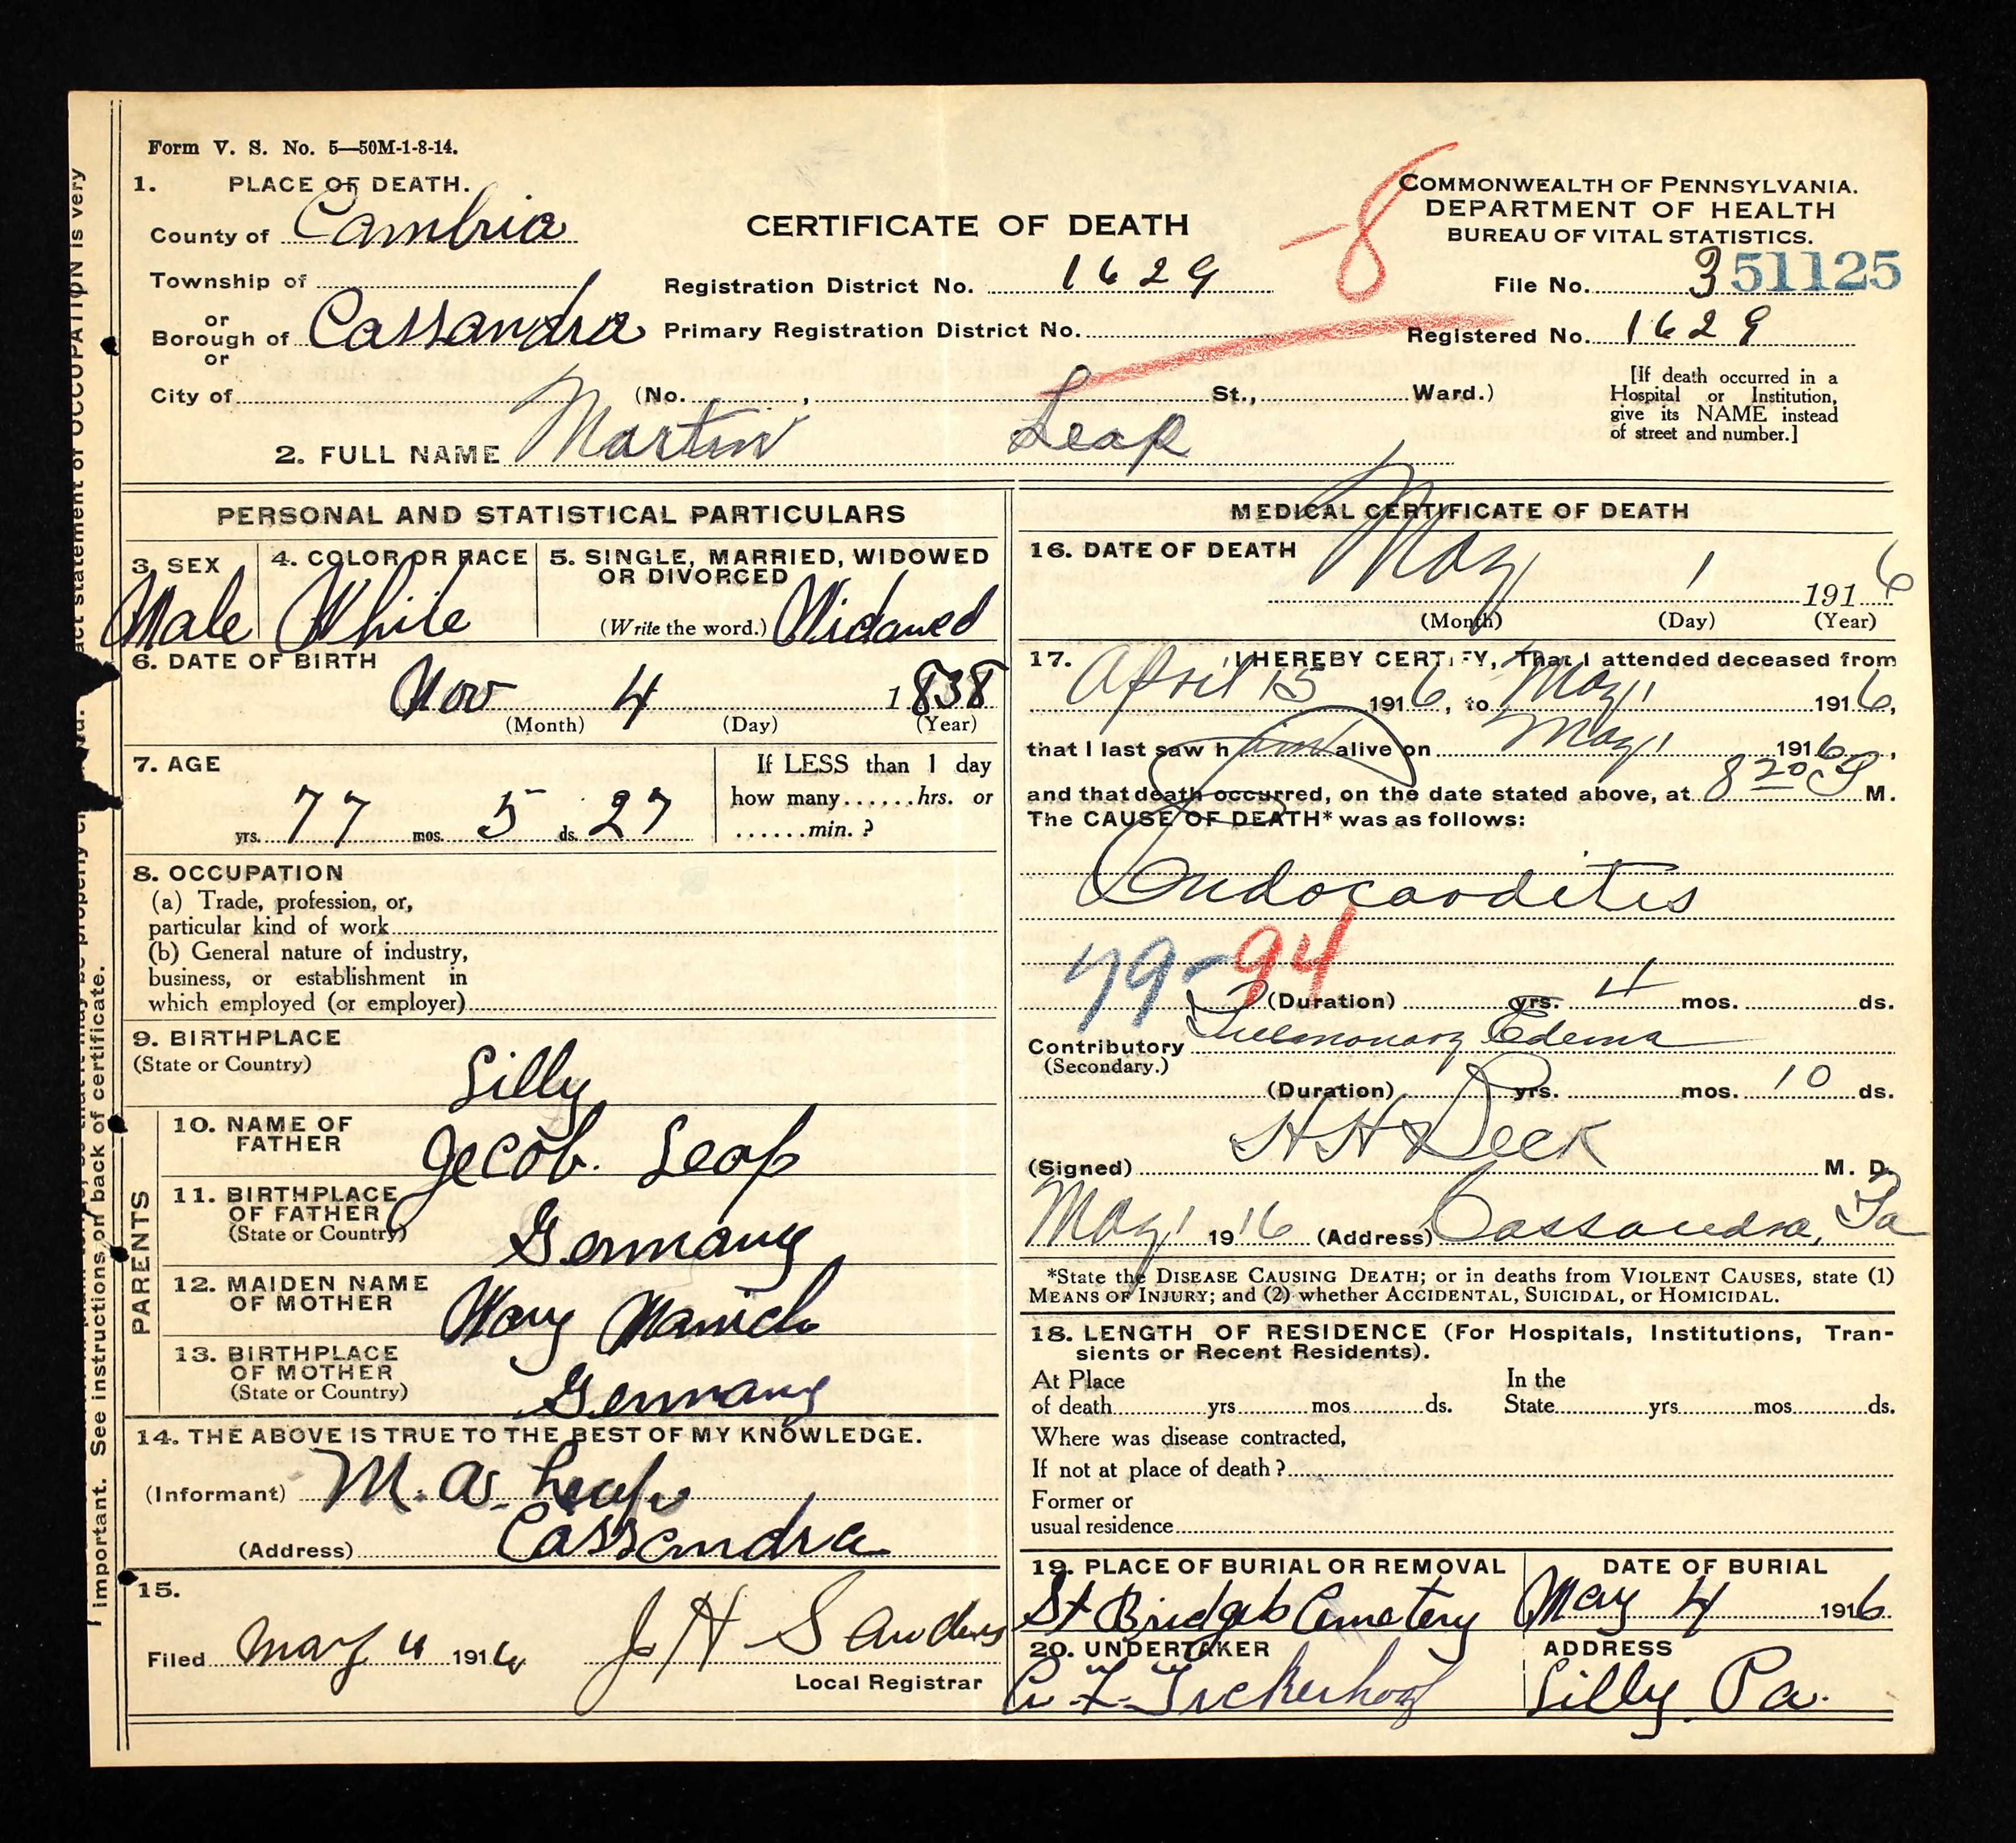 Form V. S. No. 5—50M-1-8-14.
1. PLACE OF DEATH.
County of Cambria
Township of
or
Borough of Cassandra
or
City of
CERTIFICATE OF DEATH
Registration District No. 1629
Primary Registration District No.
(No. , St., Ward.)
-8
COMMONWEALTH OF PENNSYLVANIA.
DEPARTMENT OF HEALTH
BUREAU OF VITAL STATISTICS.
File No. 3 51125
Registered No. 1629
[If death occurred in a
Hospital or Institution,
give its NAME instead
of street and number.]
2. FULL NAME Martin Leap
PERSONAL AND STATISTICAL PARTICULARS
3. SEX
Male
4. COLOR OR RACE
White
5. SINGLE, MARRIED, WIDOWED
OR DIVORCED
(Write the word.) Widowed
6. DATE OF BIRTH
Nov 4 1838
(Month) (Day) (Year)
7. AGE
77 yrs. 5 mos. 27 ds.
If LESS than 1 day
how many......hrs. or
......min. ?
8. OCCUPATION
(a) Trade, profession, or,
particular kind of work
(b) General nature of industry,
business, or establishment in
which employed (or employer)
9. BIRTHPLACE
(State or Country)
Lilly
PARENTS
10. NAME OF
FATHER
Jecob. Leap
11. BIRTHPLACE
OF FATHER
(State or Country)
Germany
12. MAIDEN NAME
OF MOTHER
Mary
13. BIRTHPLACE
OF MOTHER
(State or Country)
Germany
14. THE ABOVE IS TRUE TO THE BEST OF MY KNOWLEDGE.
(Informant) M. A. Leap
(Address) Cassandra
15.
Filed May 4 1916 J H Sanders
Local Registrar
MEDICAL CERTIFICATE OF DEATH
16. DATE OF DEATH
May 1 1916
(Month) (Day) (Year)
17. I HEREBY CERTIFY, That I attended deceased from
April 15 1916, to May 1 1916,
that I last saw him alive on May 1 1916,
and that death occurred, on the date stated above, at 8 20 P M.
The CAUSE OF DEATH* was as follows:
Endocarditis
79-94
(Duration) yrs. 4 mos. ds.
Contributory Pulmonary Edema
(Secondary.)
(Duration) yrs. mos. 10 ds.
(Signed) H H Deck M. D.
May 1 1916 (Address) Cassandra, Pa
*State the DISEASE CAUSING DEATH; or in deaths from VIOLENT CAUSES, state (1)
MEANS OF INJURY; and (2) whether ACCIDENTAL, SUICIDAL, or HOMICIDAL.
18. LENGTH OF RESIDENCE (For Hospitals, Institutions, Tran-
sients or Recent Residents).
At Place
of death yrs mos ds.
In the
State yrs mos ds.
Where was disease contracted,
If not at place of death?
Former or
usual residence
19. PLACE OF BURIAL OR REMOVAL
St Bridgets Cemetery
DATE OF BURIAL
May 4 1916
20. UNDERTAKER
ADDRESS
Lilly Pa.
act statement of OCCUPATION is very
important. See instructions on back of certificate.